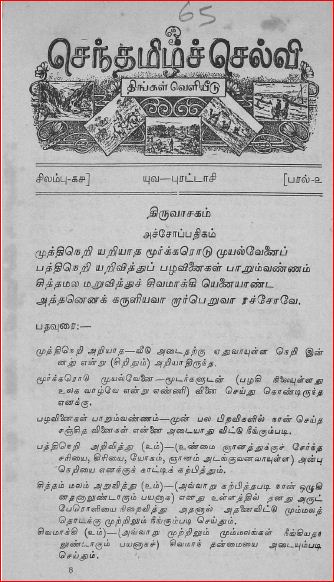 65
செந்தமிழ்ச் செல்வி
திங்கள் வெளியீடு
சிலம்பு-கச] யுவ—புரட்டாசி [பரல்-உ
திருவாசகம்
அச்சோப்பதிகம்
முத்திநெறி யறியாத மூர்க்கரொடு முயல்வேனைப்
பத்திநெறி யறிவித்துப் பழவினைகள் பாறும்வண்ணம்
சித்தமல மறுவித்துச் சிவமாக்கி யெனையாண்ட
அத்தனெனக் கருளியவா றார்பெறுவா ரச்சோவே.
பதவுரை:—
முத்திநெறி அறியாத—வீடு அடைதற்கு ஏதுவாயுள்ள நெறி இன்
னது என்று (சிறிதும்) அறியாதிருந்த.
மூர்க்கரொடு முயல்வேனை—மூடர்களுடன் (பழகி நிலையுள்ளது
உலக வாழ்வே என்று எண்ணி) வினை செய்து கொண்டிருந்த
எனக்கு.
பழவினைகள் பாறும்வண்ணம்—முன் பல பிறவிகளில் நான் செய்த
சஞ்சித வினைகள் என்னை அடையாது விட்டு நீங்கும்படி.
பத்திநெறி அறிவித்து (உம்)—(உண்மை ஞானத்துக்குச் சேர்ந்த
சரியை, கிரியை, யோகம், ஞானம் அடங்குவனவாயுள்ள) அன்பு
நெறியை எனக்குக் காட்டிக் கற்பித்தும்.
சித்தம் மலம் அறுவித்து (உம்)—(அவ்வாறு கற்பித்தபடி நான் ஒழுகி
னதனாலுண்டாகும் பயனாக) எனது உள்ளத்தில் தனது அருட்
பேரொளியை நிறைவித்து அதனால் அதனைவிட்டு மும்மலத்
தொடக்கு முற்றிலும் நீங்கும்படி செய்தும்.
சிவமாக்கி (உம்)—(அவ்வாறு முற்றிலும் மும்மலங்கள் நீங்கியதா
லுண்டாகும் பயனாகச்) சிவமாக் தன்மையை அடையும்படி
செய்தும்.
8